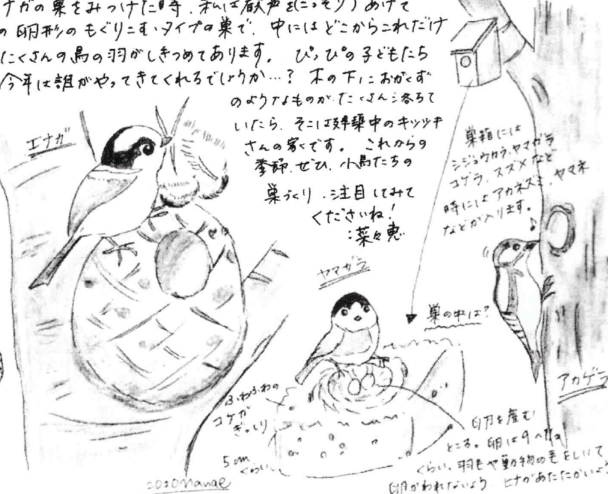 ナガの巣をみつけた時、私は歓声を(こっそり)あげて
の卵形のもぐりこむタイプの巣で、中にはどこからこれだけ
たくさんの鳥の羽がしきつめてあります。ぴっぴの子どもたち
今年は誰がやってきてくれるでしょうか…? 木の下におがくず
のようなものがたくさん落ちて
いたら、そこは建築中のキツツキ
さんの家です。これからの
季節、ぜひ、小鳥たちの
巣づくり、注目してみて
くださいね!
菜々恵
エナガ
巣箱には
シジュウカラ、ヤマガラ
コゲラ、スズメなど
時にはアカネズミ、ヤマネ
などが入ります。
ヤマガラ
巣の中は?
アカゲラ
ふわふわの
コケが
ぎっしり
5cm
くらい
卵を産む
ところ。卵は
くらい。羽毛や動物の毛をしいて
卵がわれないよう ヒナがあたたかいよ